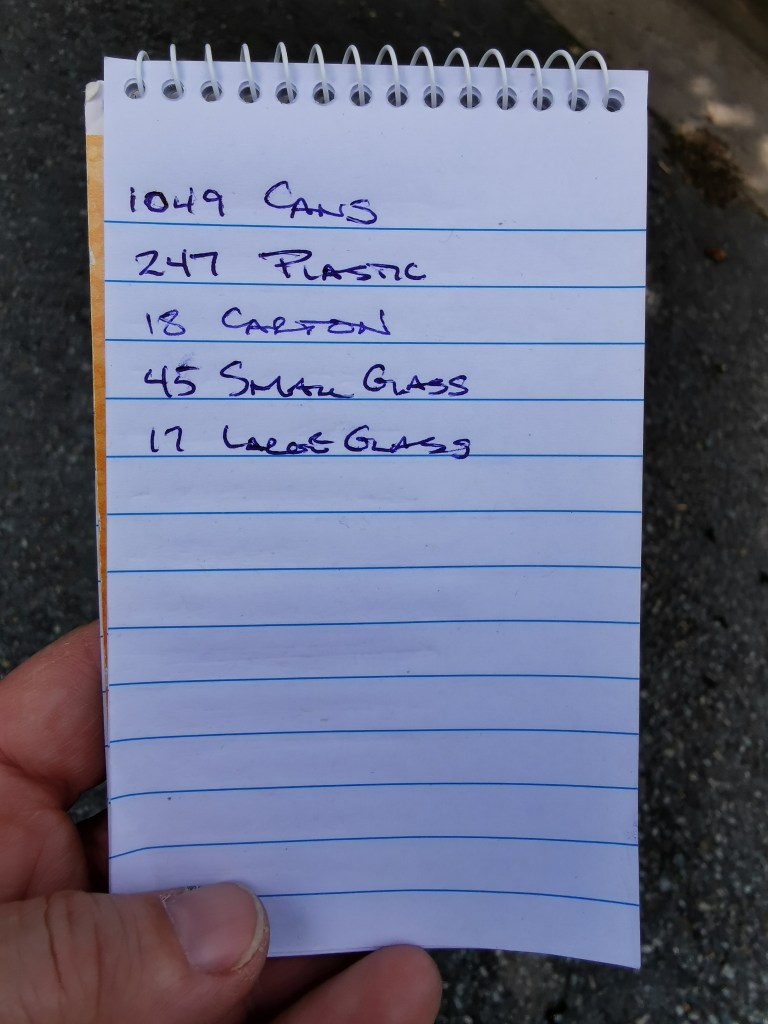 1049 CANS
247 PLASTIC
18 CARTON
45 SMALL GLASS
17 LARGE GLASS